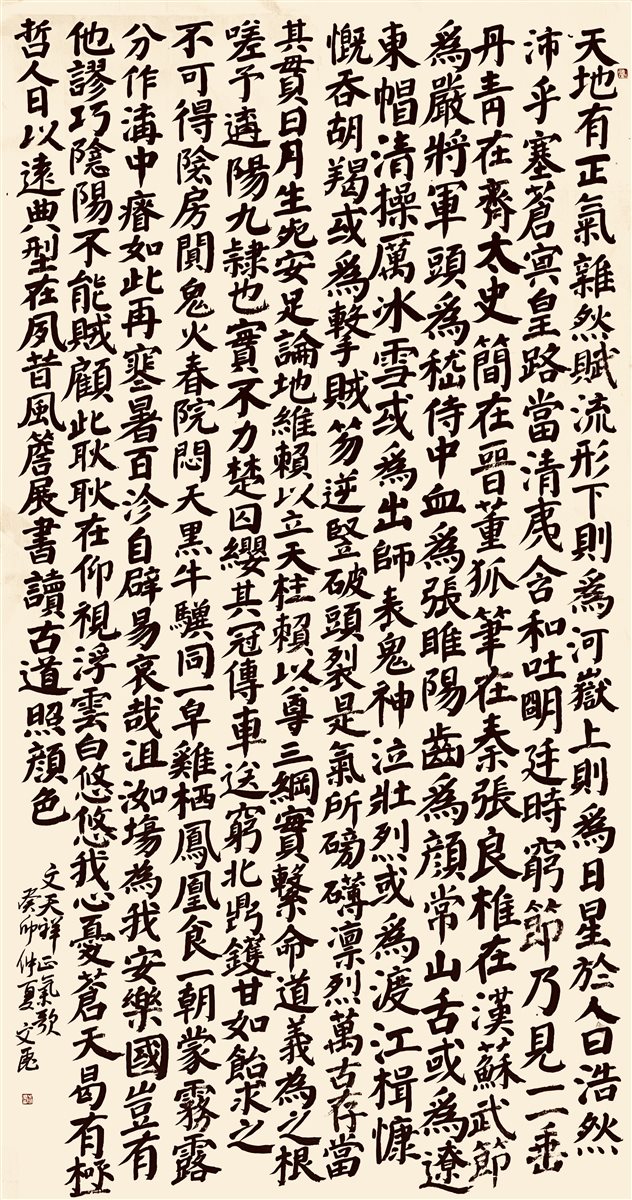 天地有正氣雜然賦流形下則為河嶽上則為日星於人曰浩然
沛乎塞蒼冥皇路當清夷含和吐明廷時窮節乃見一一垂
丹青在齊太史簡在晉董狐筆在秦張良椎在漢蘇武節
為嚴將軍頭為嵇侍中血為張睢陽齒為顏常山舌或為遼
東帽清操厲冰雪或為出師表鬼神泣壯烈或為渡江楫慷
慨吞胡羯或為擊賊笏逆豎破頭裂是氣所磅礴凛烈萬古存當
其貫日月生死安足論地維賴以立天柱賴以尊三綱實繫命道義為之根
嗟予遘陽九隸也實不力楚囚纓其冠傳車送窮北鼎鑊甘如飴求之
不可得陰房闃鬼火春院悶天黑牛驥同一皁雞栖鳳凰食一朝蒙霧露
分作溝中瘠如此再寒暑百沴自辟易哀哉沮洳場為我安樂國豈有
他謬巧陰陽不能賊顧此耿耿在仰視浮雲白悠悠我心憂蒼天曷有極
哲人日以遠典型在夙昔風簷展書讀古道照顏色
文天祥正氣歌
癸卯仲夏文